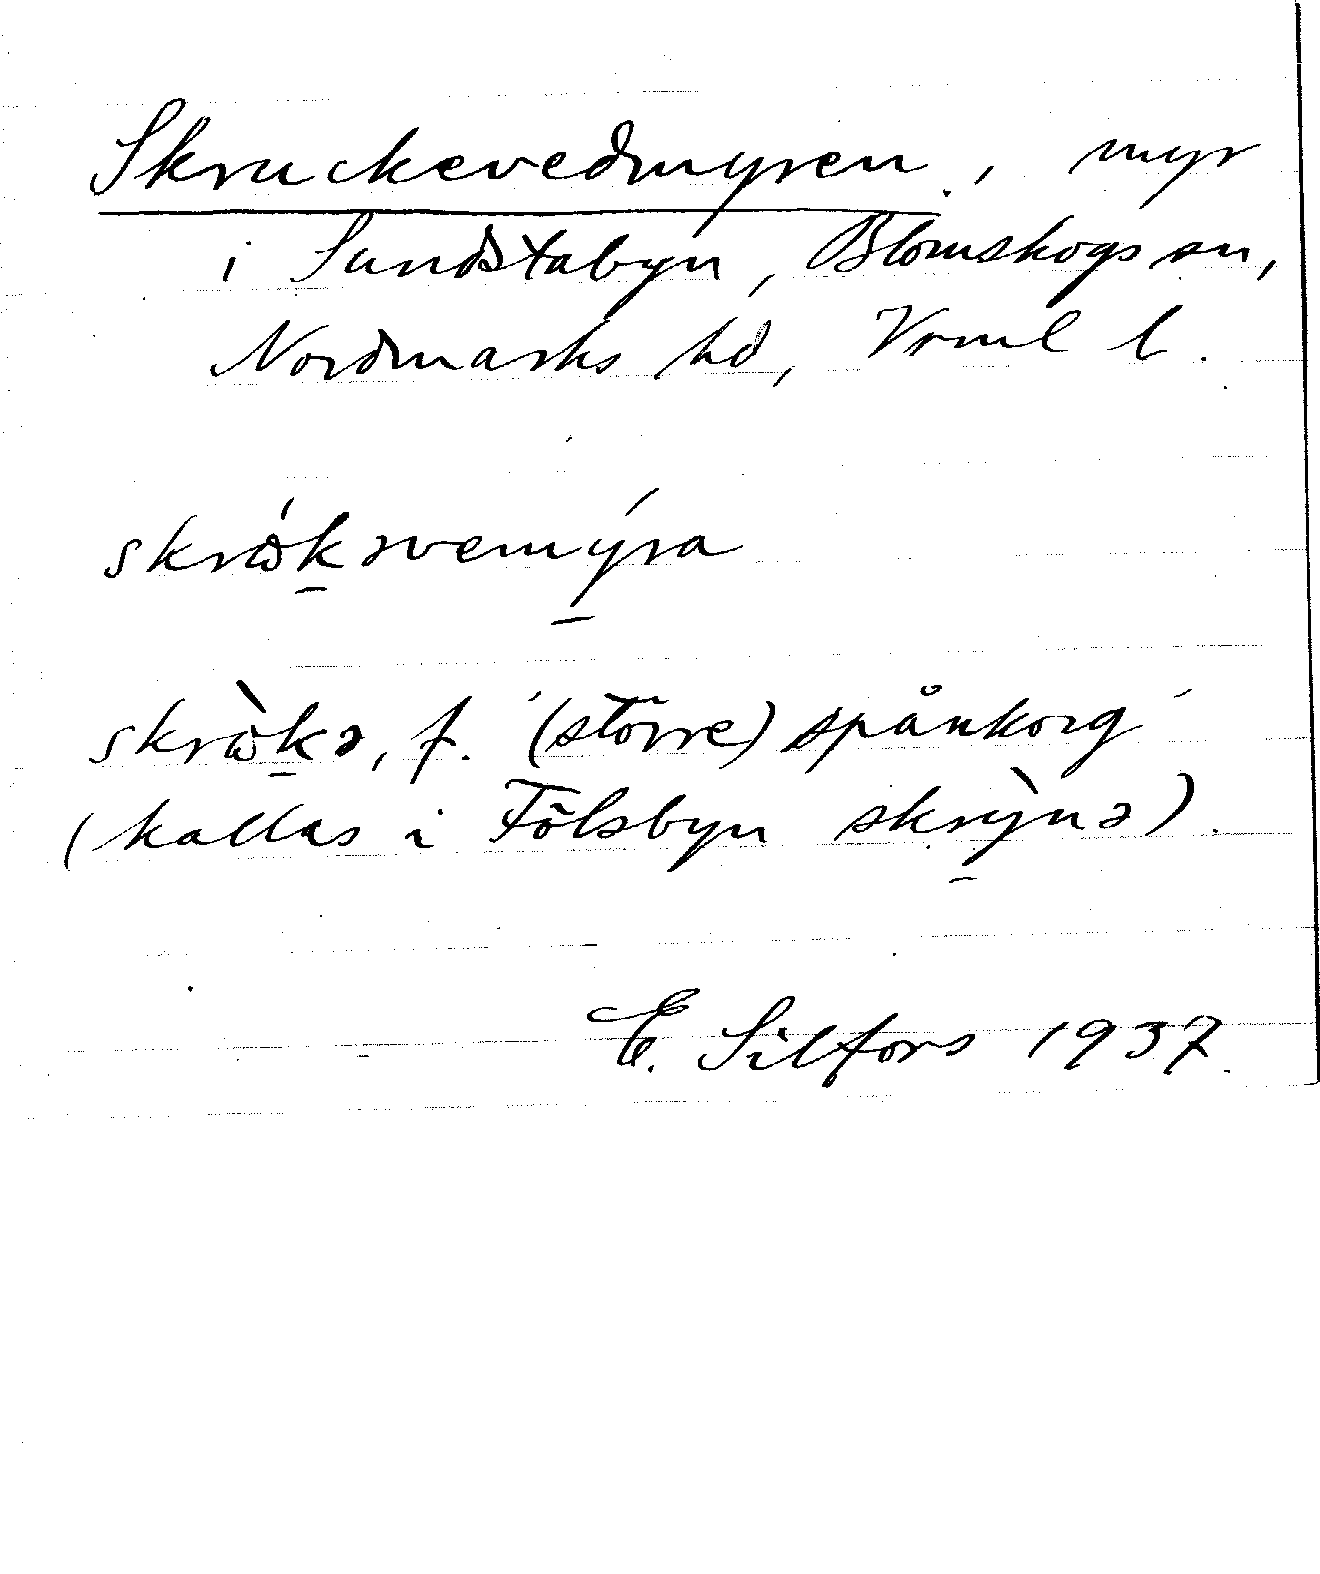 Skruckevedmyren, myr
i Sundstabyn, Blomskogs sn,
Nordmarks hd, Vrml l.
skrɷ́kəvemýra
skrɷ̀kə, f. '(större) spånkorg'
(kallas i Fölsbyn skrỳnə).
E. Silfors 1937.